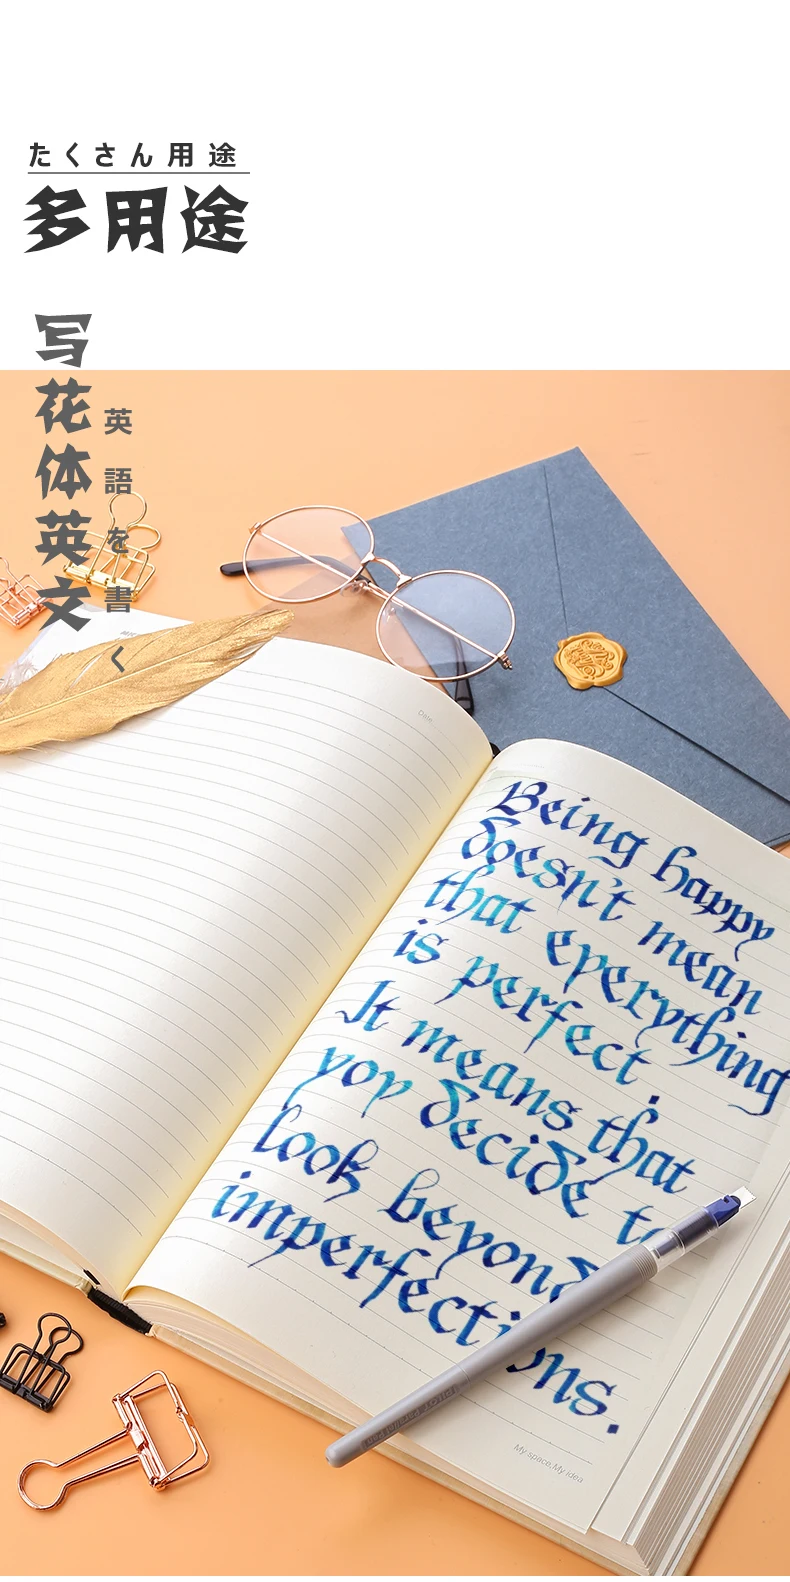 たくさん用途
多用途
写花体英文
英語を書く
Date
Being happy
doesn't mean
that everything
is perfect.
It means that
yoy decide to
look beyond
imperfections.
My space.My idea